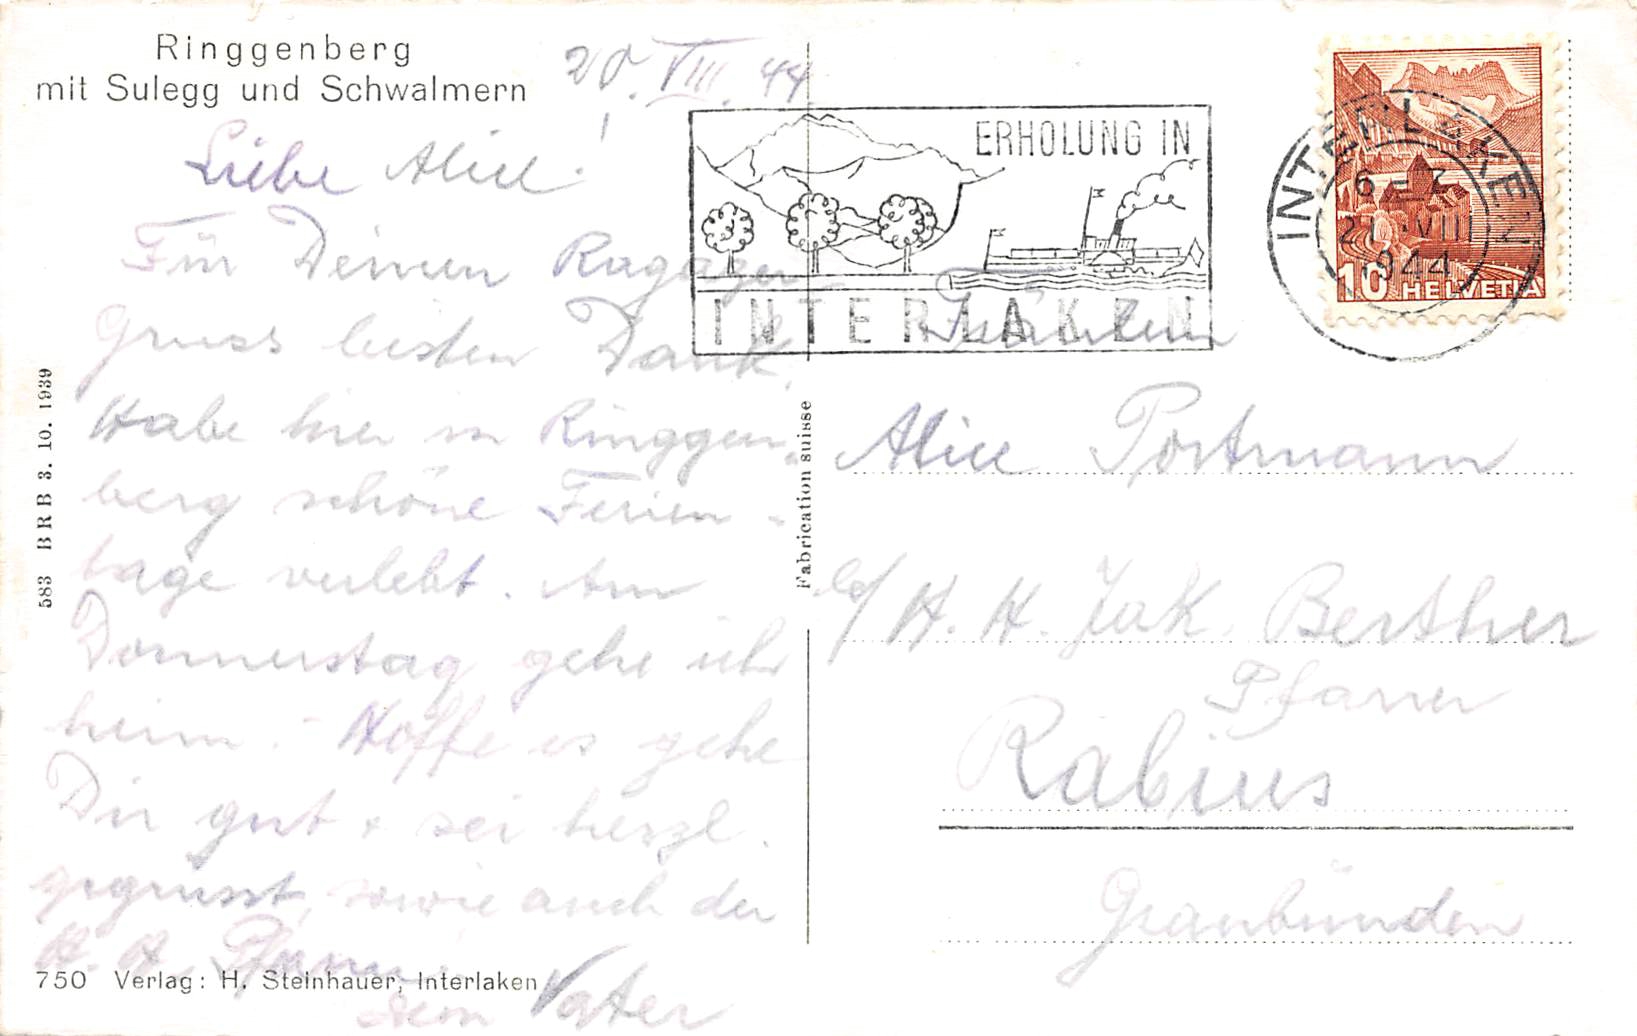 Ringgenberg
mit Sulegg und Schwalmern
20. VIII. 44
Liebe Alice!
Für Deinen Ragazer
Gruss besten Dank.
Habe hier in Ringgen-
berg schöne Ferien-
tage verlebt. Am
Donnerstag gehe ich
heim. - Hoffe es gehe
Dir gut + sei herzl.
gegrüsst, sowie auch der
H. H. Pfarrer
dein Vater
583 BRB 3. 10. 1939
750 Verlag: H. Steinhauer, Interlaken
Fabrication suisse
ERHOLUNG IN
INTERLAKEN
INTERLAKEN
6-7
21. VIII
1944
10 HELVETIA
Fräulein
Alice Portmann
c/ H. H. Jak. Berther
Pfarrer
Rabius
Graubünden